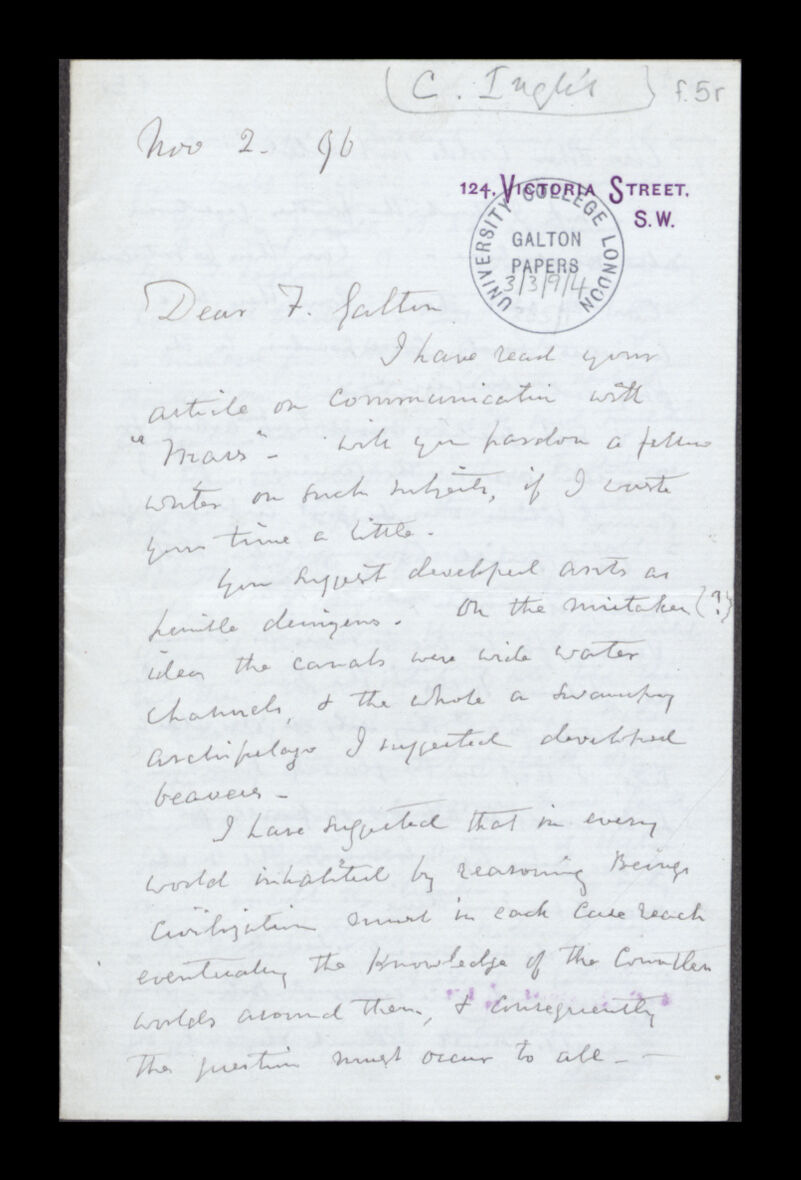 (C. Inglis)
f.5r
Nov 2. 96
124. VICTORIA STREET.
S.W.
UNIVERSITY COLLEGE LONDON
GALTON
PAPERS
3/3/9/4
Dear F. Galton
I have read your
article on communication with
"Mars" - will you pardon a fellow
writer on such subjects, if I waste
your time a little.
You suggest developed ants as
possible denizens. On the mistaken (?)
idea the canals were wide water
channels, & the whole a swampy
archipelago I suggested developed
beavers -
I have suggested that in every
world inhabited by reasoning Beings
Civilization must in each case reach
eventually the knowledge of the Countless
worlds around them, & consequently
the question must occur to all - -